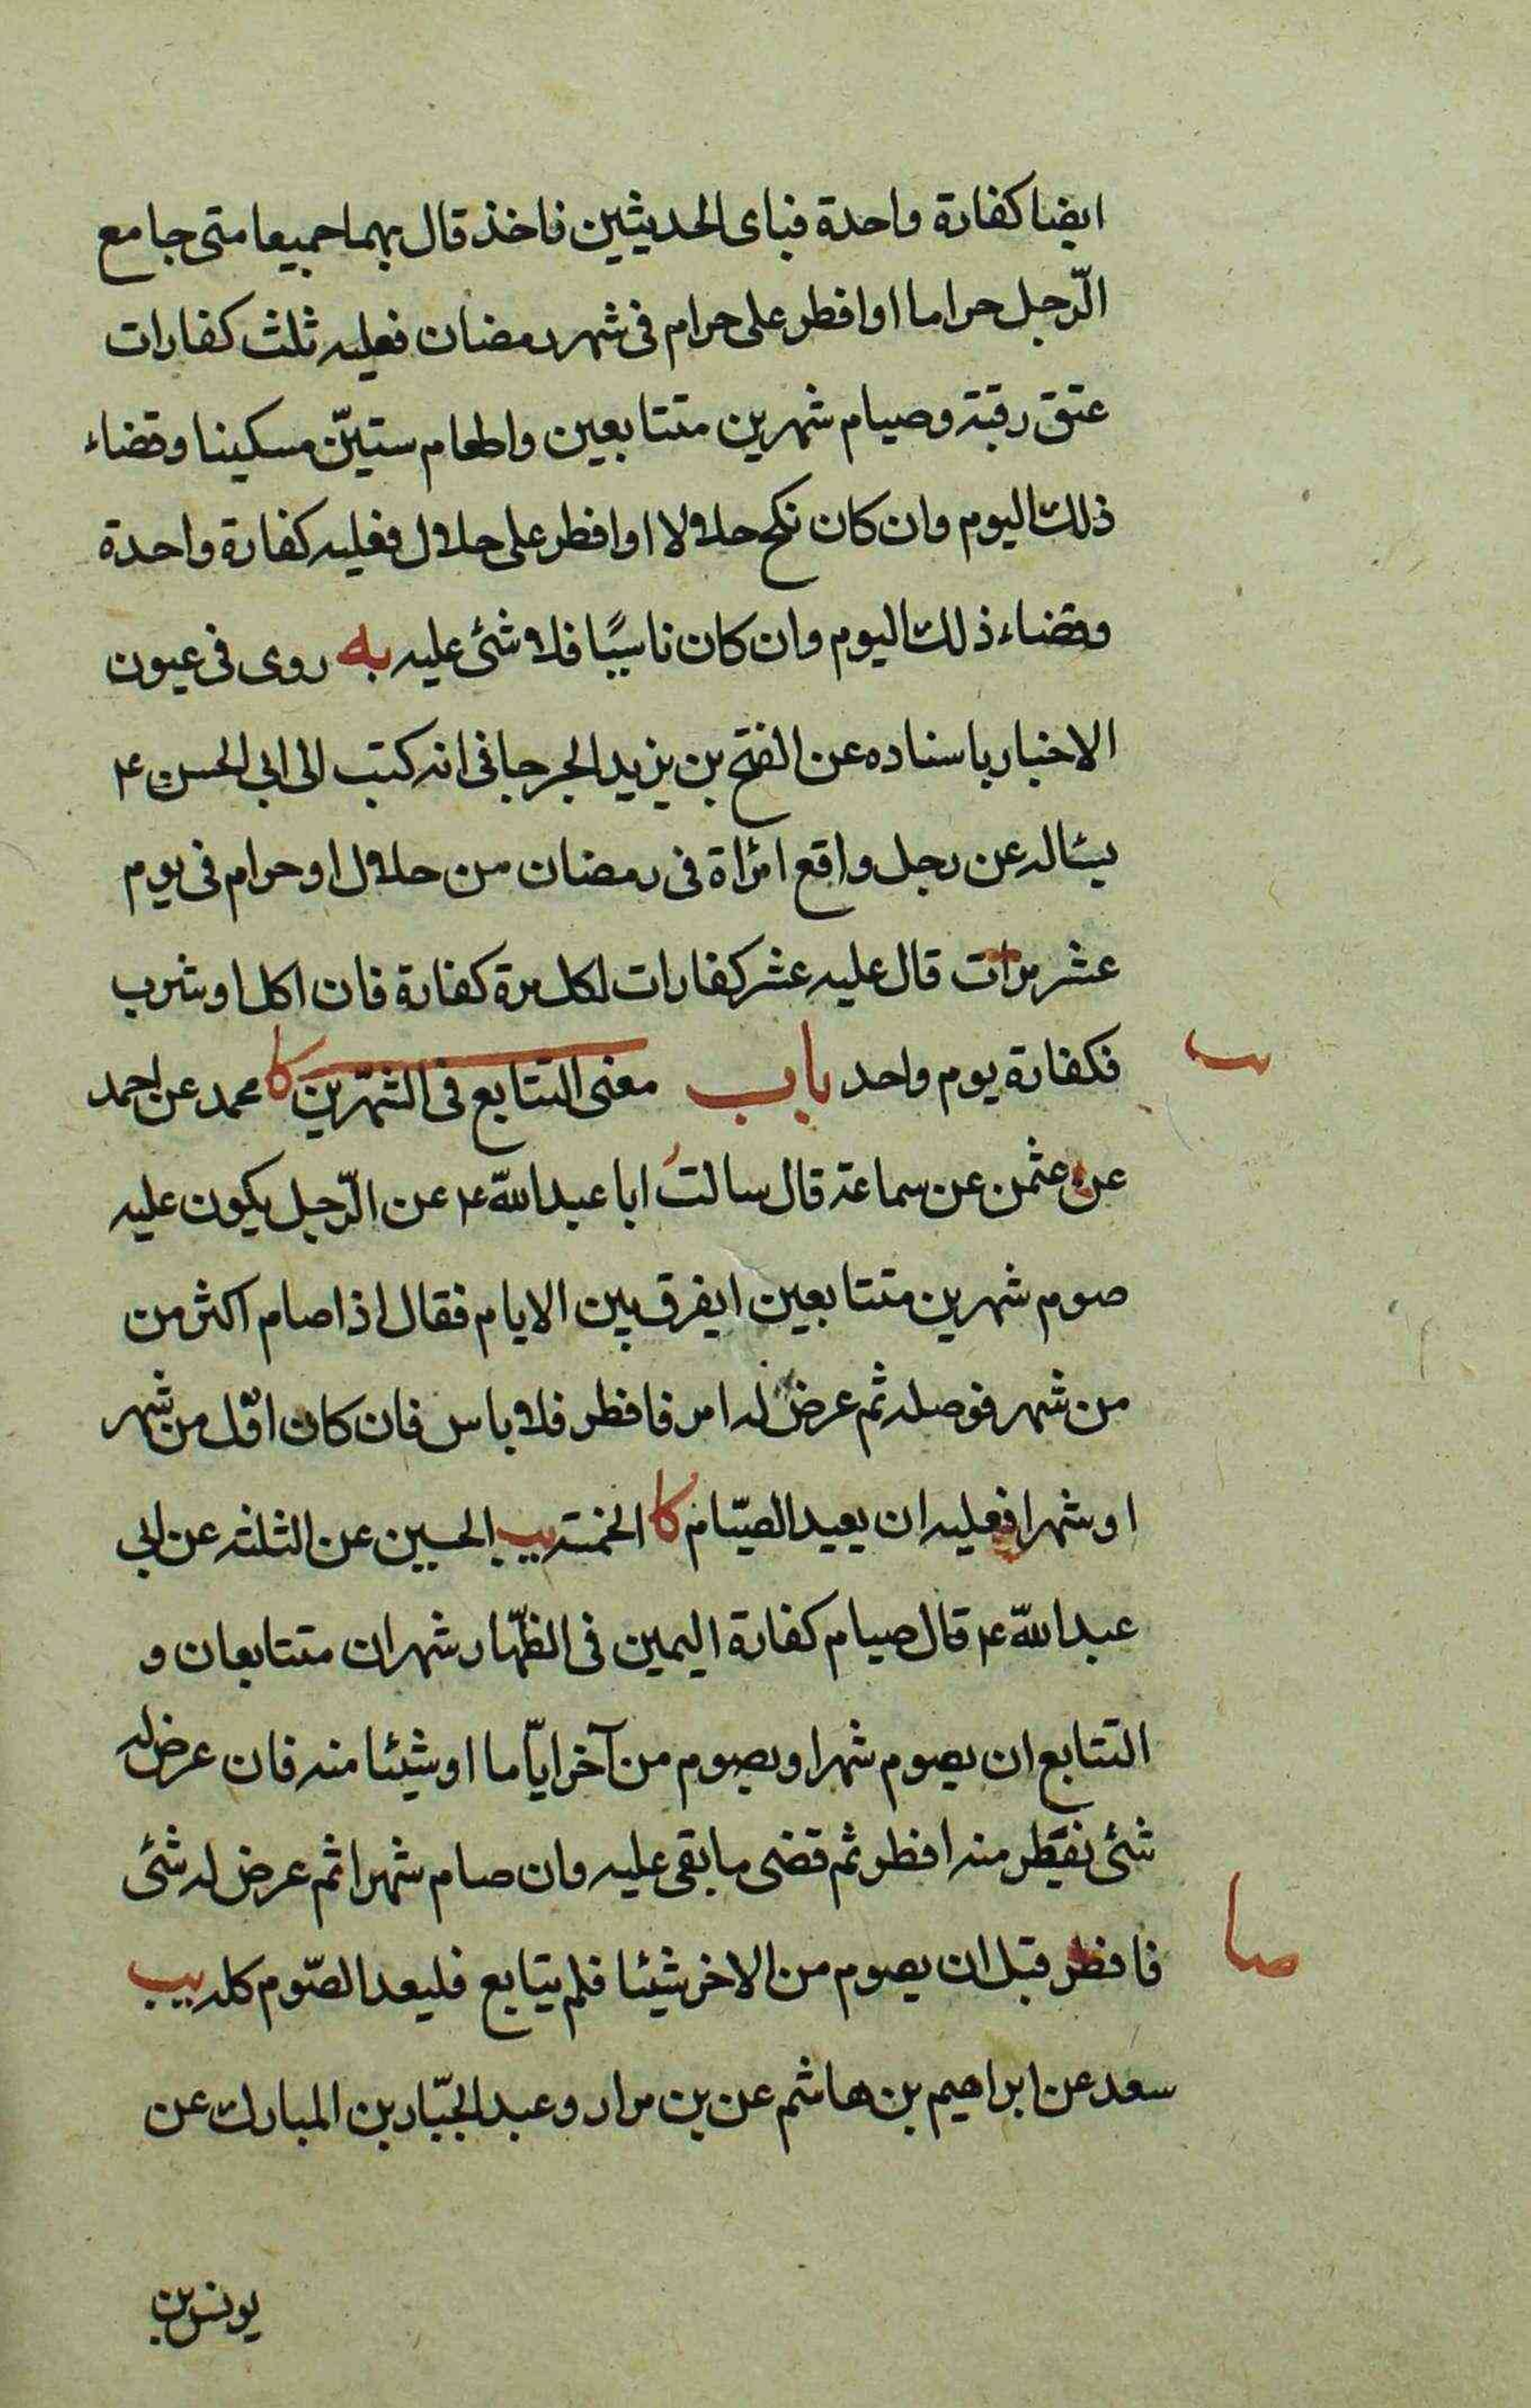 ايضا كفارة واحدة فباى الحديثين فاخذ قال بهما جميعا متى جامع
الرّجل حراما او افطر على حرام فى شهر رمضان فعليه ثلث كفارات
عتق رقبة وصيام شهرين متتابعين واطعام ستيّن مسكينا وقضاء
ذلك اليوم وان كان نكح حلالا او افطر على حلال فعليه كفارة واحدة
وقضاء ذلك اليوم وان كان ناسيًا فلا شئ عليه به روى فى عيون
الاخبار باسناده عن الفتح بن يزيد الجرجانى انه كتب الى ابى الحسن ع
يسئاله عن رجل واقع امرٔاة فى رمضان من حلال او حرام فى يوم
عشر مرات قال عليه عشر كفارات لكل مرة كفارة فان اكل او شرب
فكفارة يوم واحد باب معنى التتابع فى الشهرين كا محمد عن احمد
عن عثمن عن سماعة قال سالتُ ابا عبد اللّه ع عن الرّجل يكون عليه
صوم شهرين متتابعين ايفرق بين الايام فقال اذا صام اكثر من
من شهر فوصله ثم عرض له امر فافطر فلا باس فان كان اقل من شهر
او شهرا فعليه ان يعيد الصيّام كا الخمسة يب الحسين عن الثلثة عن ابى
عبد اللّه ع قال صيام كفارة اليمين فى الظّهار شهران متتابعان و
التتابع ان يصوم شهرا ويصوم من آخر ايّاما او شيئا منه فان عرض له
شئ يفطر منه افطر ثم قضى ما بقى عليه وان صام شهرا ثم عرض له شئ
فافطر قبل ان يصوم من الاخر شيئا فلم يتابع فليعد الصّوم كله يب
صا
سعد عن ابراهيم بن هاشم عن بن مرار وعبد الجبّار بن المبارك عن
يونس بن